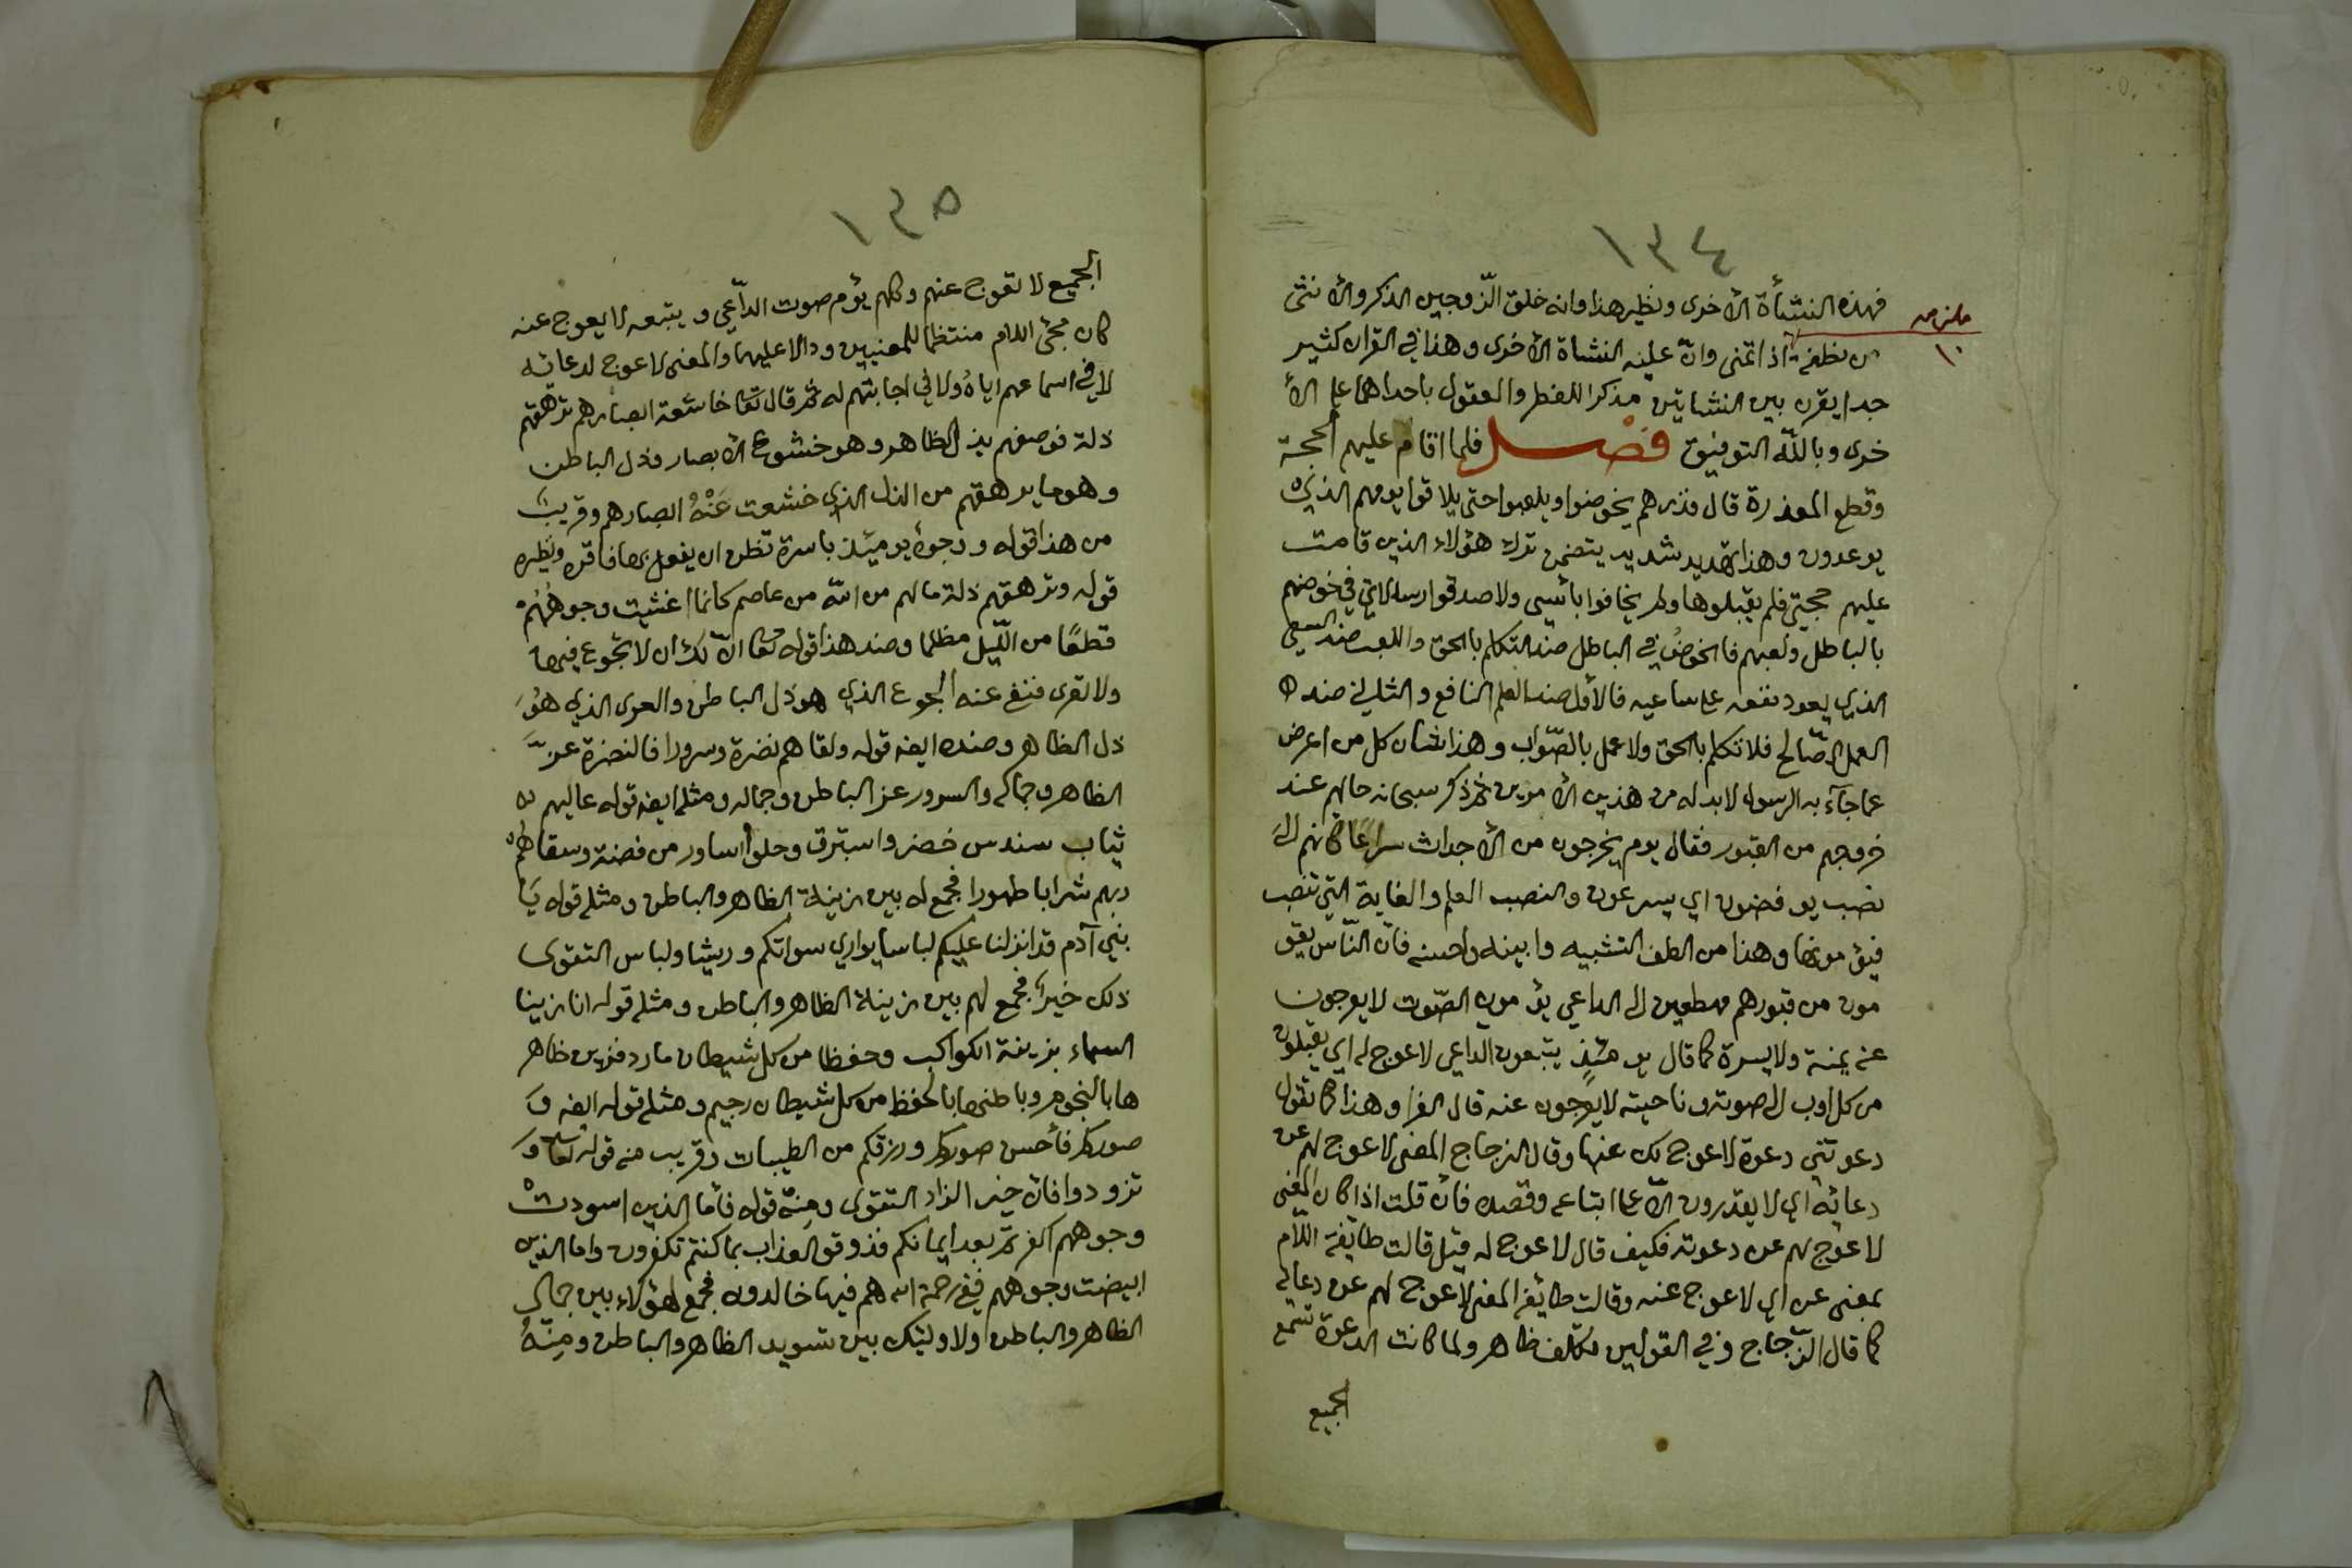 ١٣٤
فهذه النشأة الأخرى ونظير هذا وانه خلق الزّوجين الذكر والأنثى
من نطفة اذا تمنى وانّ عليه النشاة الأخرى وهذا في القران كثير
جدا يقرن بين النشاتين مذكرا للفطر والعقول باحداهما على الأ
خرى وبالله التوفيق فصل فلما اقام عليهم الحجة
وقطع المعذرة قال فذرهم يخوضوا ويلعبوا حتى يلاقوا يومهم الذي
يوعدون وهذا تهديد شديد يتضمن ترك هؤلاء الذين قامت
عليهم حجتي فلم يقبلوها ولم يخافوا بأسي ولا صدقوا رسالاتي في خوضهم
بالباطل ولعبهم فالخوض في الباطل ضد التكلم بالحق واللعب ضد السعي
الذي يعود نفعه على ساعيه فالأول ضد العلم النافع والثاني ضد
العمل الصّالح فلا تكلم بالحق ولا عمل بالصّواب وهذا شان كل من اعرض
عما جآء به الرسول لا بد له من هذين الأمرين ثم ذكر سبحانه حالهم عند
خروجهم من القبور فقال يوم يخرجون من الأجداث سراعًا كانهم الى
نصب يوفضون اي يسرعون والنصب العلم والغاية التي تنصب
فيؤمونها وهذا من الطف التشبيه وابينه واحسنه فانّ النّاس يقو
مون من قبورهم مهطعين الى الداعي يؤمون الصّوت لا يعرجون
عنه يمنة ولا يسرة كما قال يومئذٍ يتبعون الداعي لا عوج له اي يقبلون
من كل اوب الى صوته وناحيته لا يعرجون عنه قال الفرا وهذا كما تقول
دعوتني دعوة لا عوج لك عنها وقال الزجاج المعنى لا عوج لهم عن
دعائه اي لا يقدرون الّا على اتباعه وقصده فأن قلت اذا كان المعنى
لا عوج لهم عن دعوته فكيف قال لا عوج له قيل قالت طايفة اللّام
بمعنى عن اي لا عوج عنه وقالت طايفة المعنى لا عوج لهم عن دعائه
كما قال الزّجاج وفي القولين تكلف ظاهر ولما كانت الدعوة تسمع
الجميع
١٣٥
الجميع لا تعوج عنهم وكلهم يؤم صوت الدّاعي ويتبعه لا يعوج عنه
كان مجئ اللام منتظما للمعنيين ودالا عليهما والمعنى لا عوج لدعائه
لا في اسماعهم اياه ولا في اجابتهم له ثم قال تعا خاشعة ابصارهم ترهقهم
ذلة فوصفهم بذل الظاهر وهو خشوع الأبصار وذل الباطن
وهو ما يرهقهم من الذل الذي خشعت عَنْهُ ابصارهم وقريب
من هذا قوله ووجوهٌ يومئذ باسرة تظن ان يفعل بها فاقرة ونظيره
قوله وترهقهم ذلة ما لهم من الله من عاصم كانما اغشيت وجوههُم
قطعًا من اللّيل مظلما وضد هذا قوله تعا انّ لك ان لا تجوع فيها
ولا تعرى فنفى عنه الجوع الذي هو ذل الباطن والعرى الذي هُو
ذل الظاهر وضده ايضا قوله ولقاهم نضرة وسرورا فالنضرة عزّ
الظاهر وجماله والسرور عز الباطن وجماله ومثله ايضا قوله عاليهم
ثياب سندس خضر واستبرق وحلوا اساور من فضة وسقاهم
ربهم شرابا طهورا فجمع له بين زينة الظاهر والباطن ومثله قوله يَا
بني آدم قد انزلنا عليكم لباسا يواري سواتكم وريشا ولباس التقوى
ذلك خيرٌ فجمع لهم بين زينة الظاهر والباطن ومثله قوله انا زينا
السماء بزينة الكواكب وحفظا من كل شيطان مارد فزين ظاهر
ها بالنجوم وباطنها بالحفظ من كل شيطان رجيم ومثله قوله ايضا وَ
صوركم فأحسن صوركم ورزقكم من الطيبات وقريب منه قوله تعا وَ
تزودوا فان خير الزاد التقوى ومِنهُ قوله فأما الذين اسودت
وجوههم اكفرتم بعد ايمانكم فذوقو العذاب بما كنتم تكفرون واما الذين
ابيضت وجوههم ففي رحمة الله هم فيها خالدون فجمع لهؤلاء بين جمالي
الظاهر والباطن ولاوليك بين تسويد الظاهر والباطن ومِنهُ